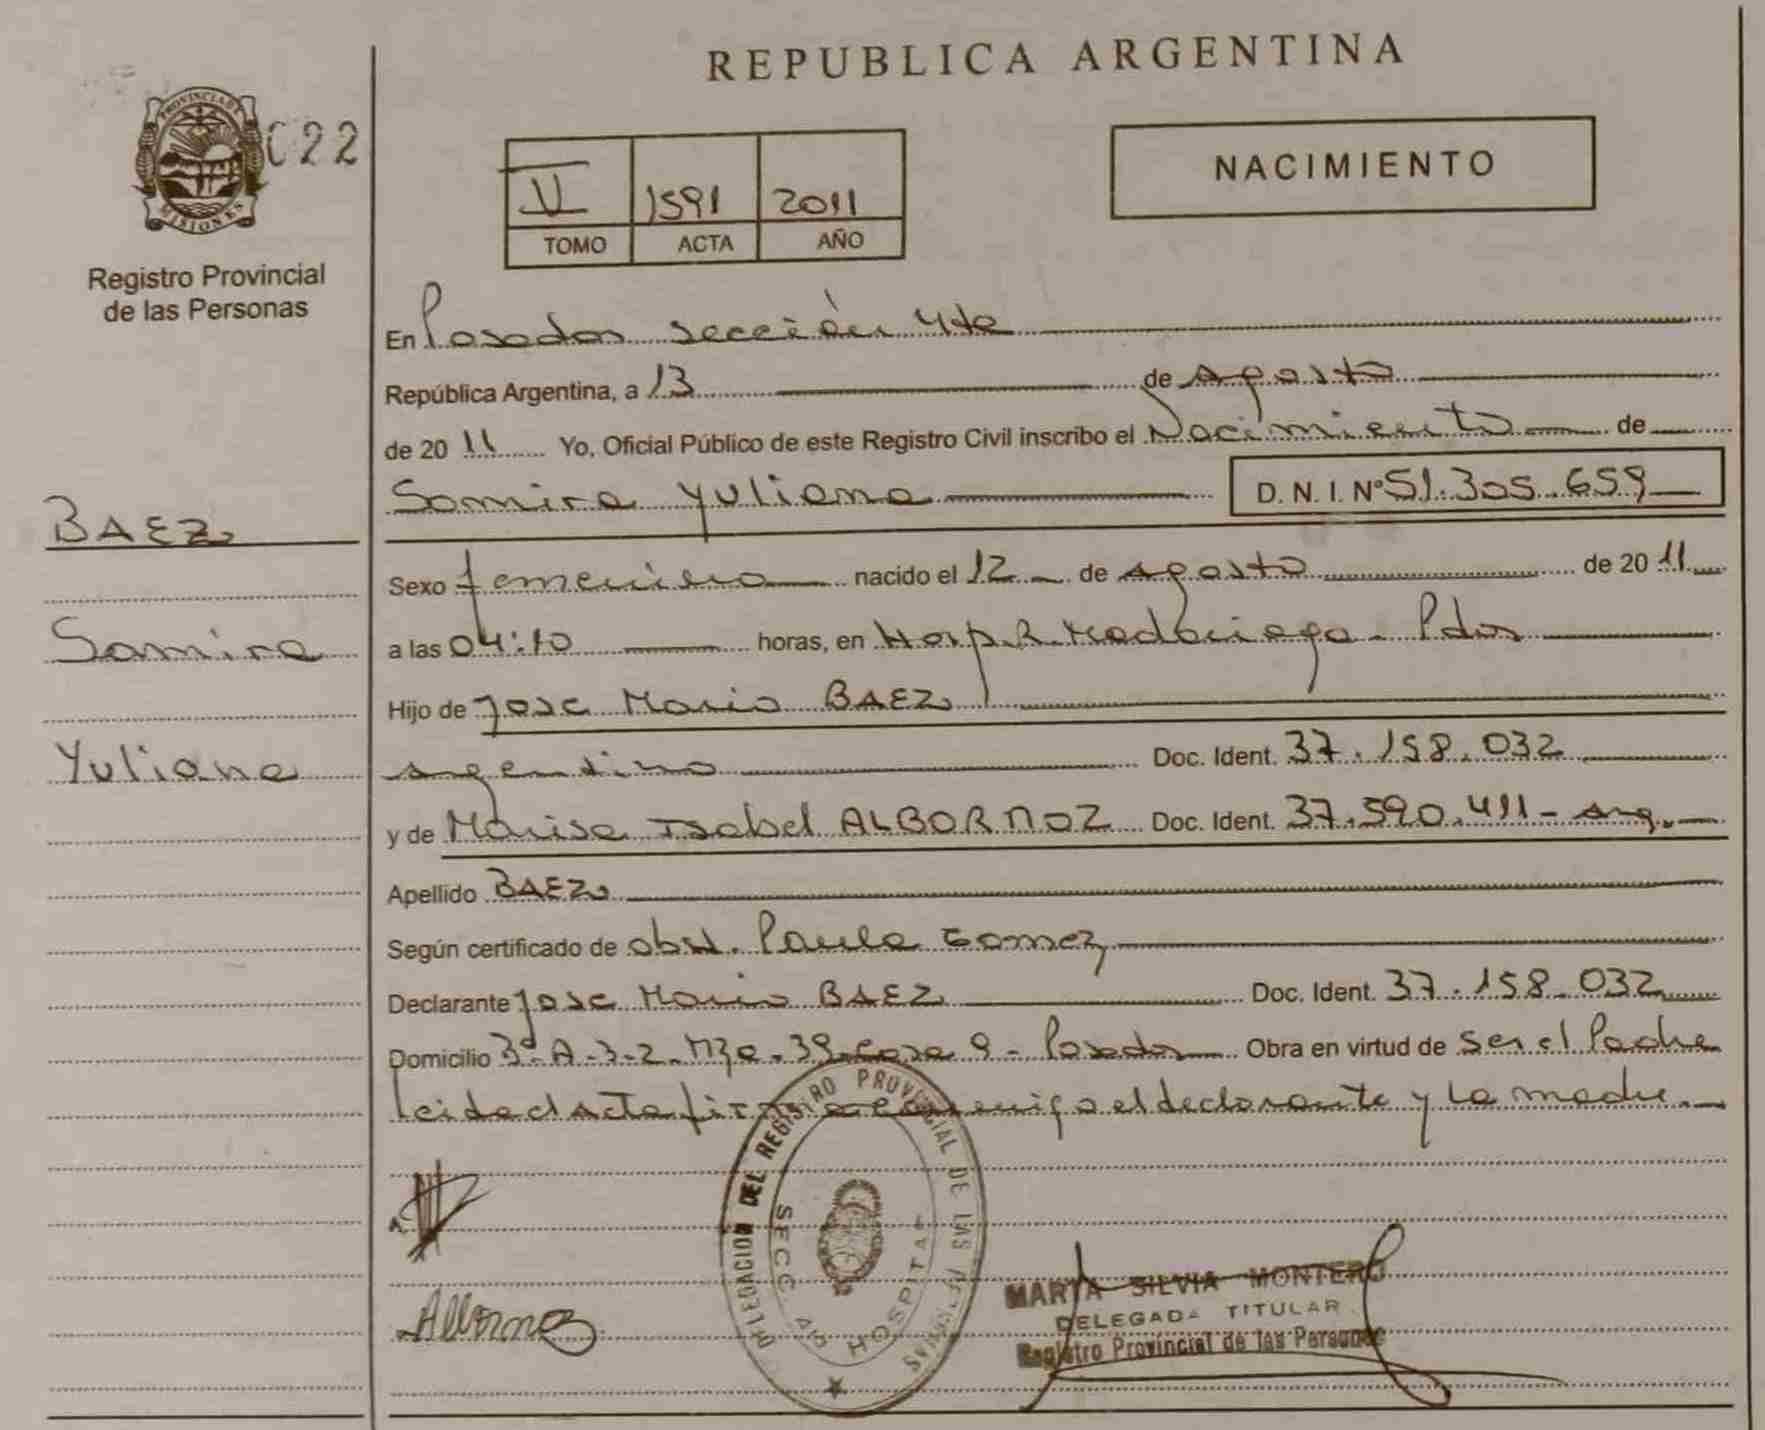 REPUBLICA ARGENTINA
PROVINCIA DE
MISIONES
022
Registro Provincial
de las Personas
1591 2011
TOMO ACTA AÑO
NACIMIENTO
En Posadas sección 4ta
República Argentina, a 13 de agosto
de 2011 Yo, Oficial Público de este Registro Civil inscribo el Nacimiento de
Samira Yuliana D. N. I. Nº 51.305.659
BAEZ
Samira
Yuliana
Sexo femenino nacido el 12 de agosto de 2011
a las 04:10 horas, en Hosp. R. Madariaga - Pdas
Hijo de Jose Mario BAEZ
argentino Doc. Ident. 37.158.032
y de Marisa Isabel ALBORNOZ Doc. Ident. 37.590.411 - arg.
Apellido BAEZ
Según certificado de obst. Paula Gomez
Declarante Jose Mario BAEZ Doc. Ident. 37.158.032
Domicilio 3º-A-3-2-Mza.39-Casa 9 - Posadas Obra en virtud de ser el Padre
leida el acta firma conmigo el declarante y la madre.
DELEGACION DEL REGISTRO PROVINCIAL DE LAS PERSONAS
SECC. HOSPITAL
Albornoz
MARTA SILVIA MONTERO
DELEGADA TITULAR
Registro Provincial de las Personas